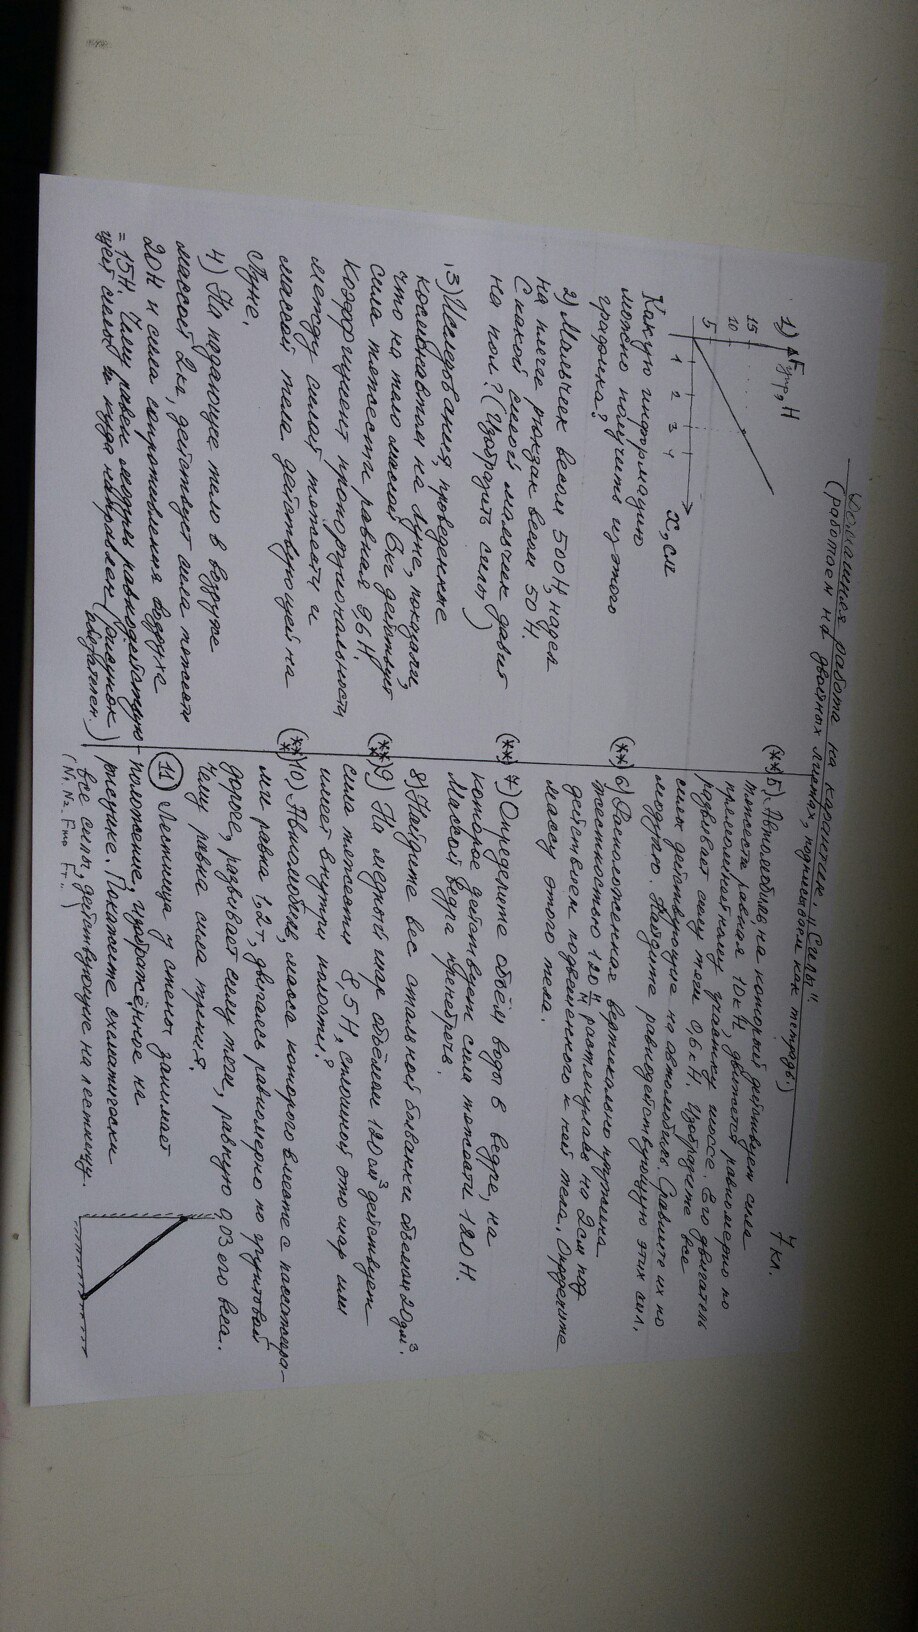 Домашняя работа на каникулы. "Силы".
(работаем на двойных листах, подписываем как тетрадь.)
7 кл.
1) Fупр, Н
15
10
5
1 2 3 4
x, см
Какую информацию
можно получить из этого
графика?
2) Мальчик весом 500Н, надел
на плечи рюкзак весом 50 Н.
С какой силой мальчик давит
на пол? (Изобразить силы)
3) Исследования, проведенные
космонавтом на Луне, показали,
что на тело массой 6кг действует
сила тяжести равная 9,6 Н.
Коэффициент пропорциональности
между силой тяжести и
массой тела действующей на
Луне.
4) На падающее тело в воздухе
массой 2кг, действует сила тяжести
20Н и сила сопротивления воздуха
= 15Н. Чему равен модуль равнодействую-
щей силы и куда направлен (рисунок
обязателен)
(**) 5) Автомобиль, на который действует сила
тяжести равная 10кН, движется равномерно по
прямолинейному участку шоссе. Его двигатель
развивает силу тяги 0,6кН. Изобразите все
силы действующие на автомобиль. Сравните их по
модулю. Найдите равнодействующую этих сил.
(**) 6) Расположенная вертикально пружина
жесткостью 120 Н/м растянулась на 2см под
действием подвешенного к ней тела. Определите
массу этого тела.
(**) 7) Определите объём воды в ведре, на
которое действует сила тяжести 120Н.
Массой ведра пренебречь.
8) Найдите вес стальной болванки объемом 20дм³.
(**) 9) На медный шар объёмом 120см³ действует
сила тяжести 8,5Н, сплошной это шар или
имеет внутри полость?
(**) 10) Автомобиль, масса которого вместе с пассажира-
ми равна 1,2т, двигаясь равномерно по грунтовой
дороге, развивает силу тяги, равную 0,03 его веса.
Чему равна сила трения.
11) Лестница у стены занимает
положение, изображённое на
рисунке. Покажите схематически
все силы, действующие на лестницу.
(N₁ N₂ Fтр Fт..)